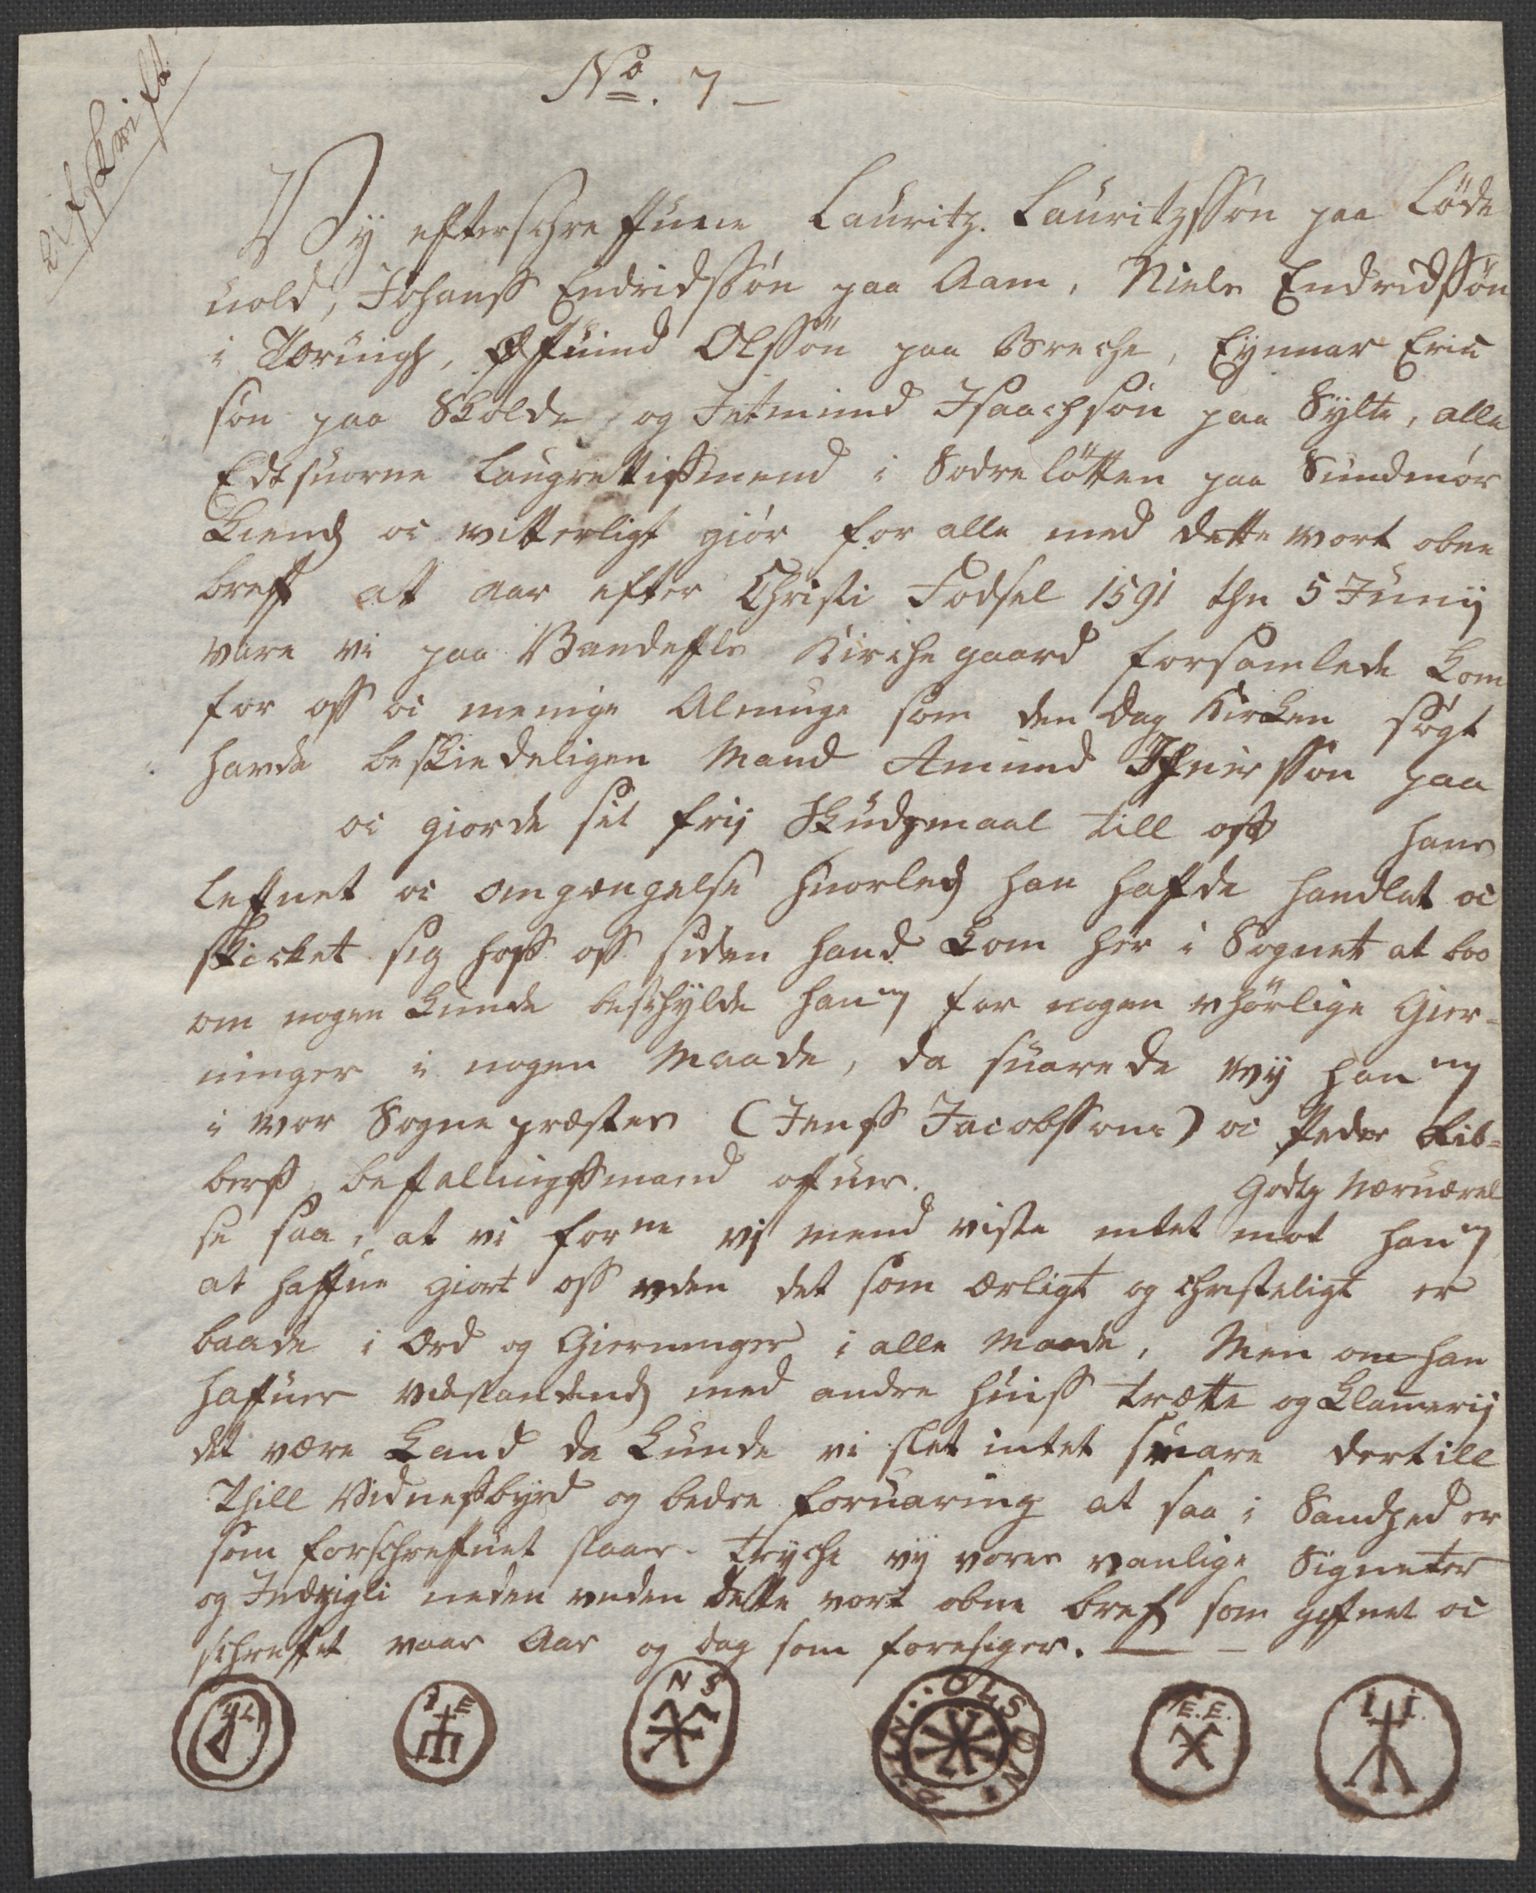 Afskrift
No. 7 —
Wy efterschreffuene Lauritz. Lauritzssön paa Löde
uold, Johanss Endridssön paa Aam, Niels Endridssön
i Thruigh, Öffuind Olssön paa Breche, Eynnar Eric
sön paa Skolde, og Jetmund Jsaachsön paa Sylte, alle
Edtsuorne Laugrettissmend i Sodrelötten paa Sundmör
Kiendh oc witterligt giör for alle med dette wort obne
breff at aar efter Christi Fodsel 1591 thn 5 Junij
vare vi paa Bandefls Kirchegaard forsamlede kom
for oss oc menige Almuge som den dag Kirken sögt
havde beskiedeligen Mand Amund Ifuersson paa
oc giorde sit frij Skudzmaal till oss hans
Leffnet oc omgængelse huorledh han hafde handlet oc
skicket sig hoss oss siden hand kom her i Sognet at boo
om nogen kunde beschylde hanm for nogen vhörlige Gier-
ninger i nogen Maade, da suarede wij hanm
i vor Sognepræstes (Jenss Jacobssons) oc Peder Rib-
berss befallingssmand ofuer. Godtz Nærværel
se saa, at vi forne vj mend viste intet mot hanm
at haffue giort oss vden det som ærligt og christeligt er
baade i Ord og Gierninger i alle Maade, Men om han
hafuer vdestandendh med andre huiss trætte og Klammerij
det være kand da kunde vi slet intet suare dertill
Thill Vidnessbyrd og bedre foruaring at saa i Sandhed er
som forschreffuet staar. trÿche vij vores vanlige Signeter
og Indzigli neden unden dette vort obne bref som gifuet oc
schreffet vaar Aar og dag som foresiger. —
L L
I E
N S
ØVIN : OLSØN
E. E.
I I